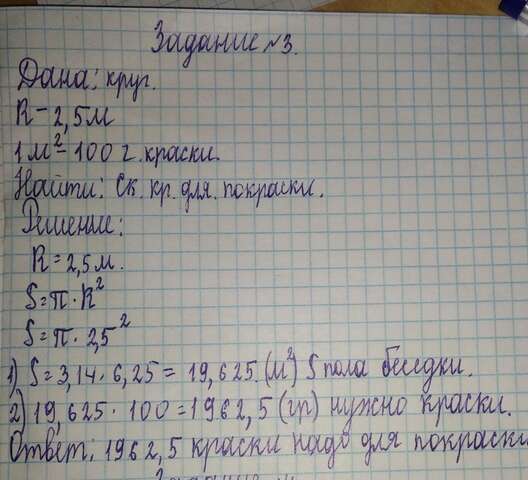 Задание №3.
Дана: круг.
R - 2,5м
1м² - 100 г. краски.
Найти: Ск. кр. для. покраски.
Решение:
R = 2,5м.
S = π · R²
S = π · 2,5²
1) S = 3,14 · 6,25 = 19,625 (м²) S пола беседки.
2) 19,625 · 100 = 1962,5 (гр) нужно краски.
Ответ: 1962,5 краски надо для покраски